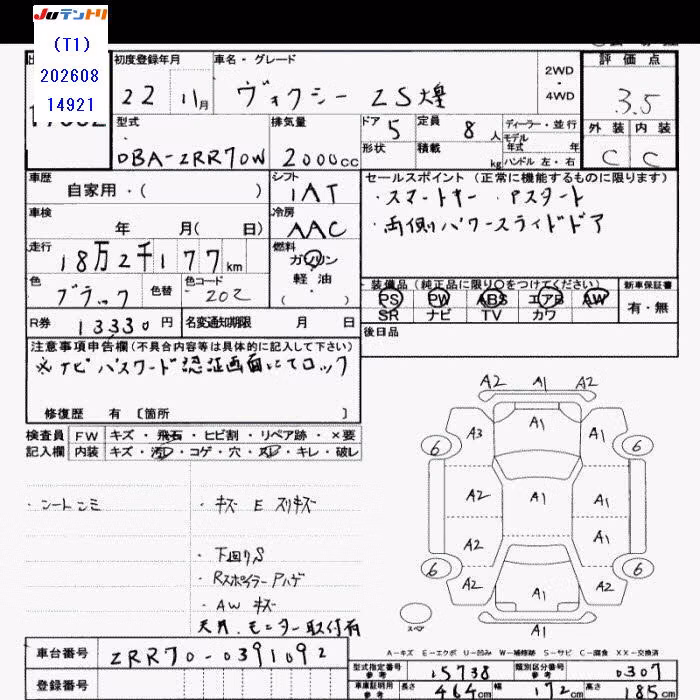 JUテントリ
(T1)
202608
14921
初度登録年月
車名・グレード
評価点
22 11月
ヴォクシー ZS煌
2WD
・
4WD
3.5
型式
排気量
ドア 5
定員 8人
ディーラー・並行
外装 内装
形状
積載 kg
モデル年式 年式
ハンドル 左・右
DBA-ZRR70W
2000cc
C C
車歴
シフト
セールスポイント (正常に機能するものに限ります)
自家用・( )
IAT
・スマートキー ・Pスタート
車検
冷房
・両側パワースライドドア
年 月( 日)
AAC
走行
燃料
18万2千177km
ガソリン
・
軽油
・
( )
色
色替
色コード
装備品 (純正品に限り○をつけてください)
新車保証書
ブラック
202
PS PW ABS エアB AW
有・無
SR ナビ TV カワ
R券 13330円
名変通知期限 月 日
後日品
注意事項申告欄(不具合内容等は具体的に記入して下さい)
※ナビパスワード認証画面にてロック
修復歴 有 〔箇所 〕
検査員 FW キズ・飛石・ヒビ割・リペア跡・×要
記入欄 内装 キズ・汚レ・コゲ・穴・スレ・キレ・破レ
A2 A1 A2
A3 A1 A1
6 6
A2 A1 A1
A2 A1
6 6
A2 A1 A2
A1
スペア
・シートシミ
・キズ E スリキズ
・下回りS
・RスポイラーAハゲ
・AW キズ
天井.モニター取付有
A-キズ E-エクボ U-凹み W-補修跡 S-サビ C-腐食 XX-交換済
車台番号 ZRR70-0391092
登録番号
型式指定番号 参考 15738
類別区分番号 参考 0307
車庫証明用 参考 長さ 464cm 幅 172cm 高さ 185cm